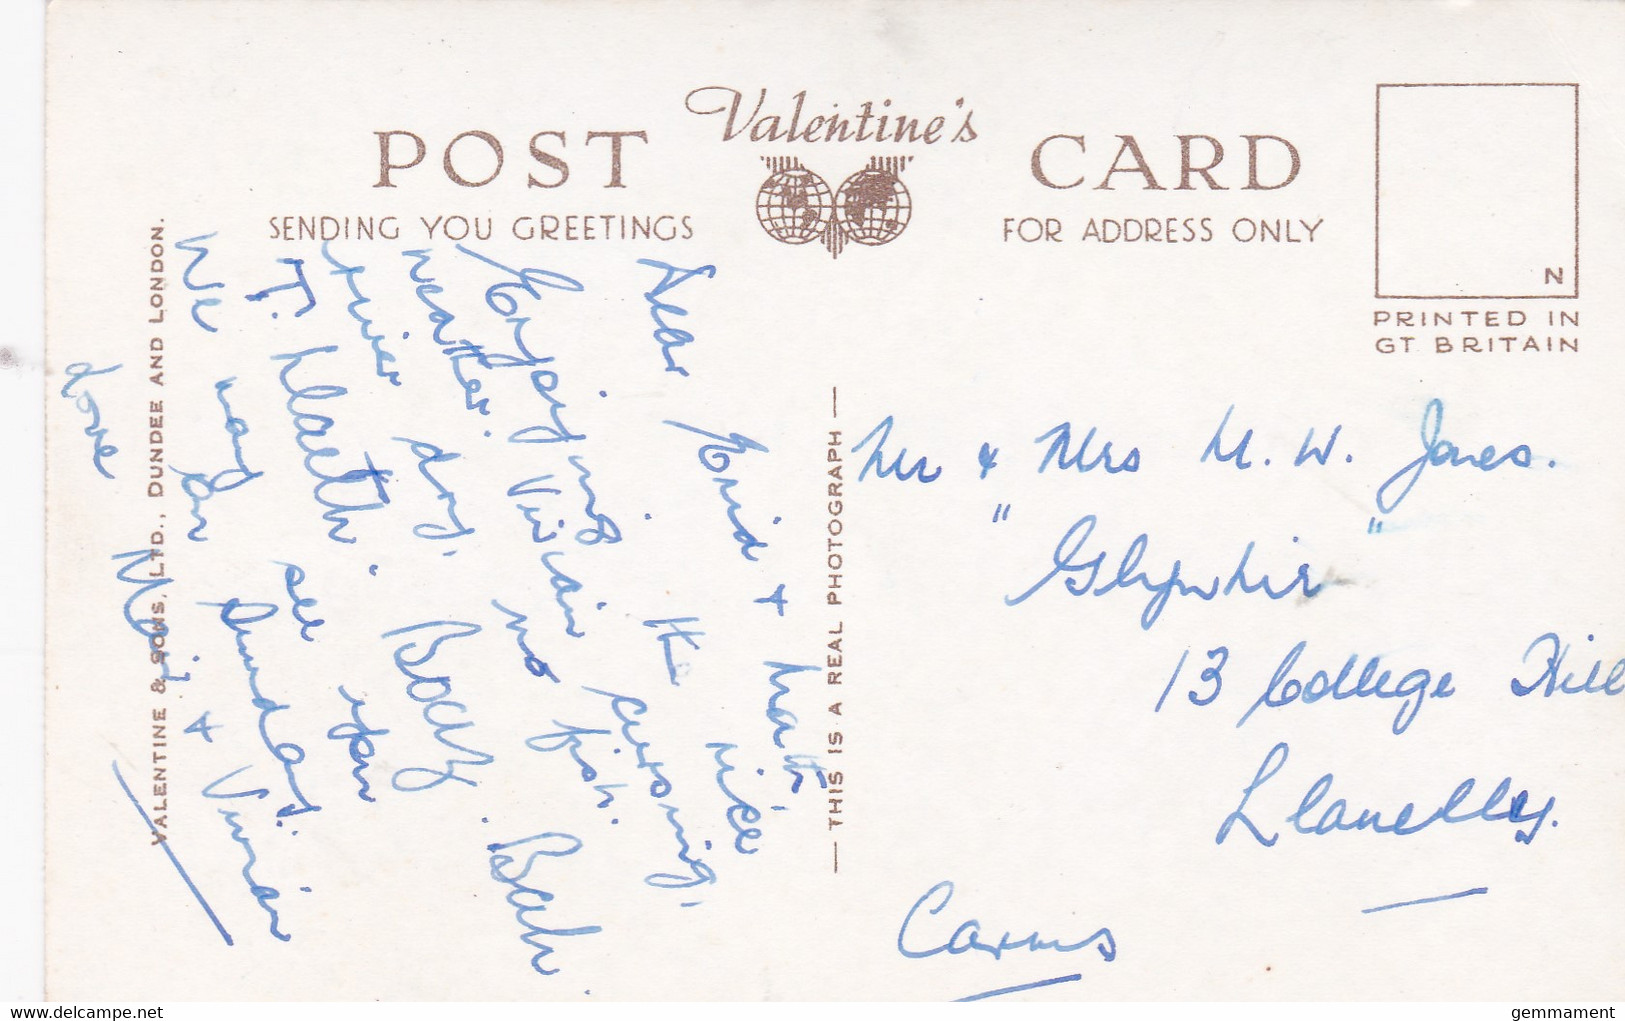 POST Valentine's CARD
SENDING YOU GREETINGS
FOR ADDRESS ONLY
N
PRINTED IN
GT. BRITAIN
VALENTINE & SONS, LTD., DUNDEE AND LONDON.
— THIS IS A REAL PHOTOGRAPH —
Dear Enid +
Enjoying the nice
weather. Vivian
river dry, no fish.
T. Llaeth. Body Bach.
We may see
on Sunday.
Love Mair + Vivian
Mr & Mrs M. W. Jones.
" "
13 College Hill
Llanelly.
Carms
delcampe.net
gemmament